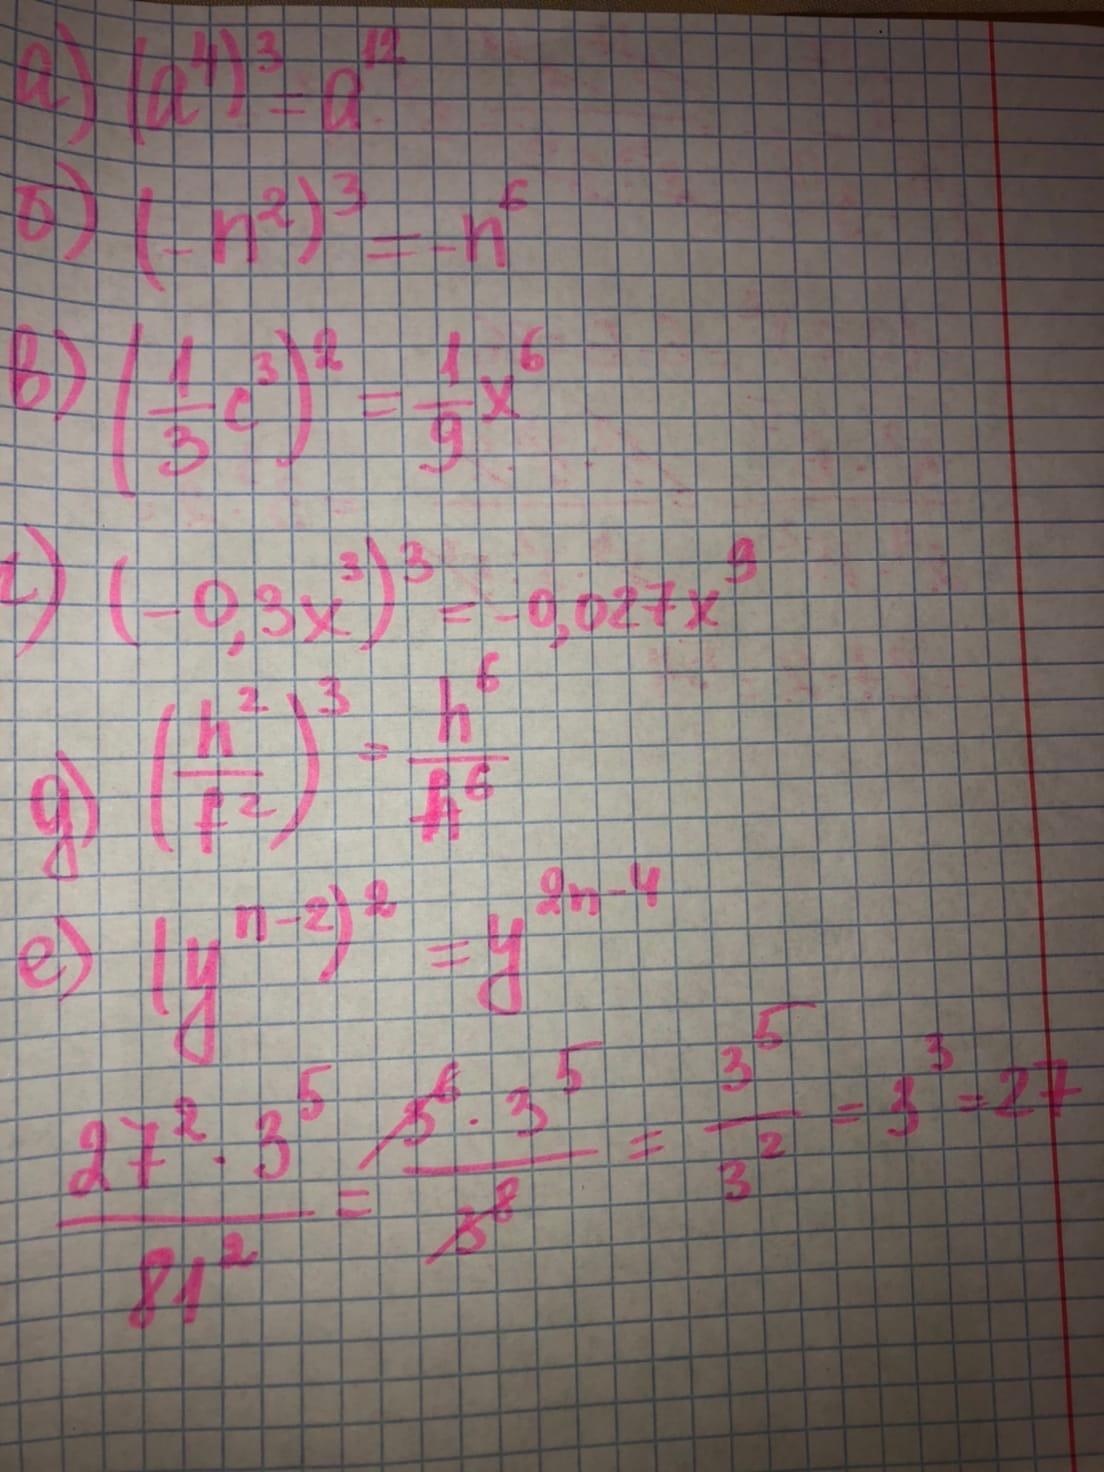 а) (a⁴)³ = a¹²
б) (-n²)³ = -n⁶
в) (1/3 c³)² = 1/9 x⁶
г) (-0,3x³)³ = -0,027x⁹
д) (h²/f²)³ = h⁶/f⁶
е) (yⁿ⁻²)² = y²ⁿ⁻⁴
27² · 3⁵ / 81² = 3⁶ · 3⁵ / 3⁸ = 3⁵ / 3² = 3³ = 27